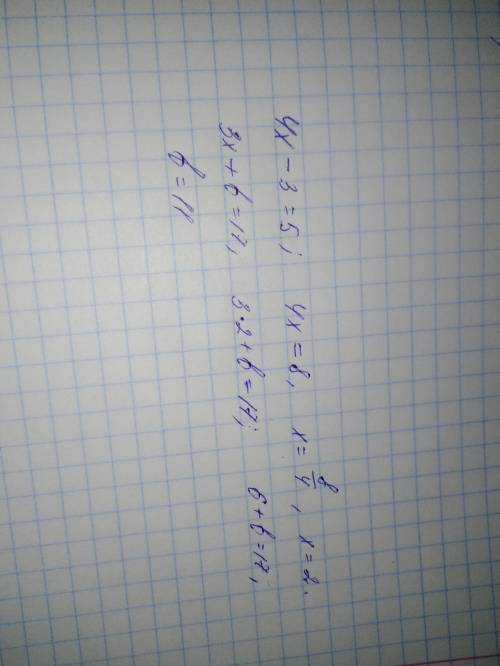 4x - 3 = 5; 4x = 8, x = 8/4, x = 2.
3x + b = 17, 3·2 + b = 17; 6 + b = 17,
b = 11